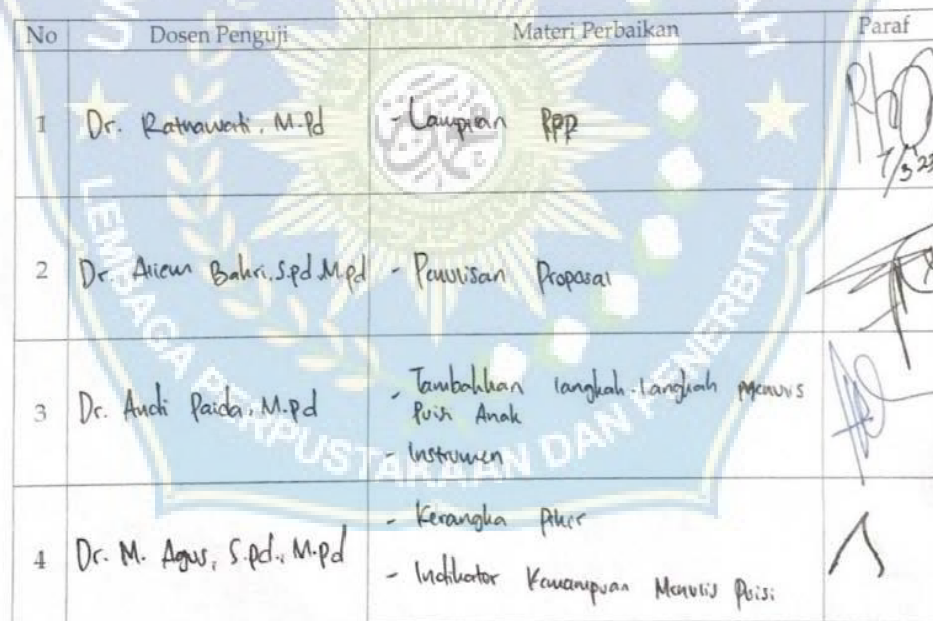 No Dosen Penguji Materi Perbaikan Paraf
1 Dr. Ratnawati, M.Pd - Lampiran RPP
7/3 23
2 Dr. Aliem Bahri, S.pd.M.pd - Penulisan Proposal
3 Dr. Andi Paida, M.pd - Tambahkan langkah-langkah Menulis
Puisi Anak
- Instrumen
4 Dr. M. Agus, S.pd., M.pd - Kerangka Pikir
- Indikator Kemampuan Menulis Puisi
LEMBAGA PERPUSTAKAAN DAN PENERBITAN